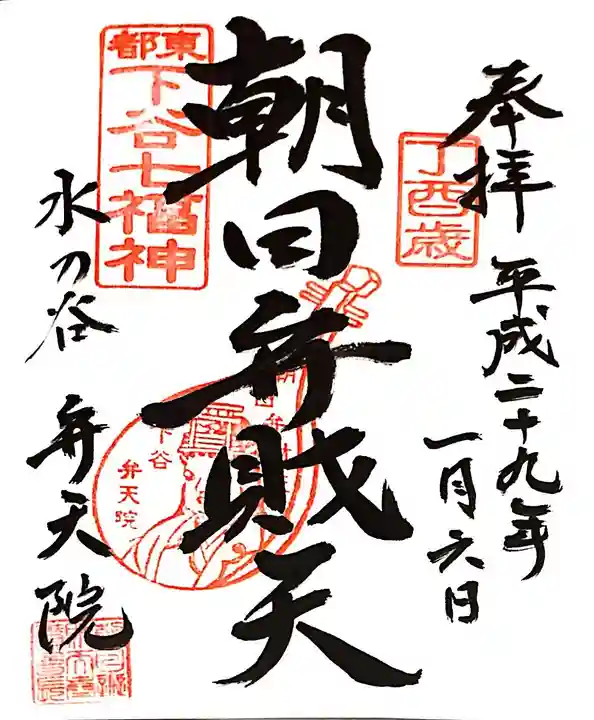 奉拝
平成二十九年
一月六日
丁酉歳
朝日弁財天
東都
下谷七福神
水の谷
弁天院
下谷
弁天院